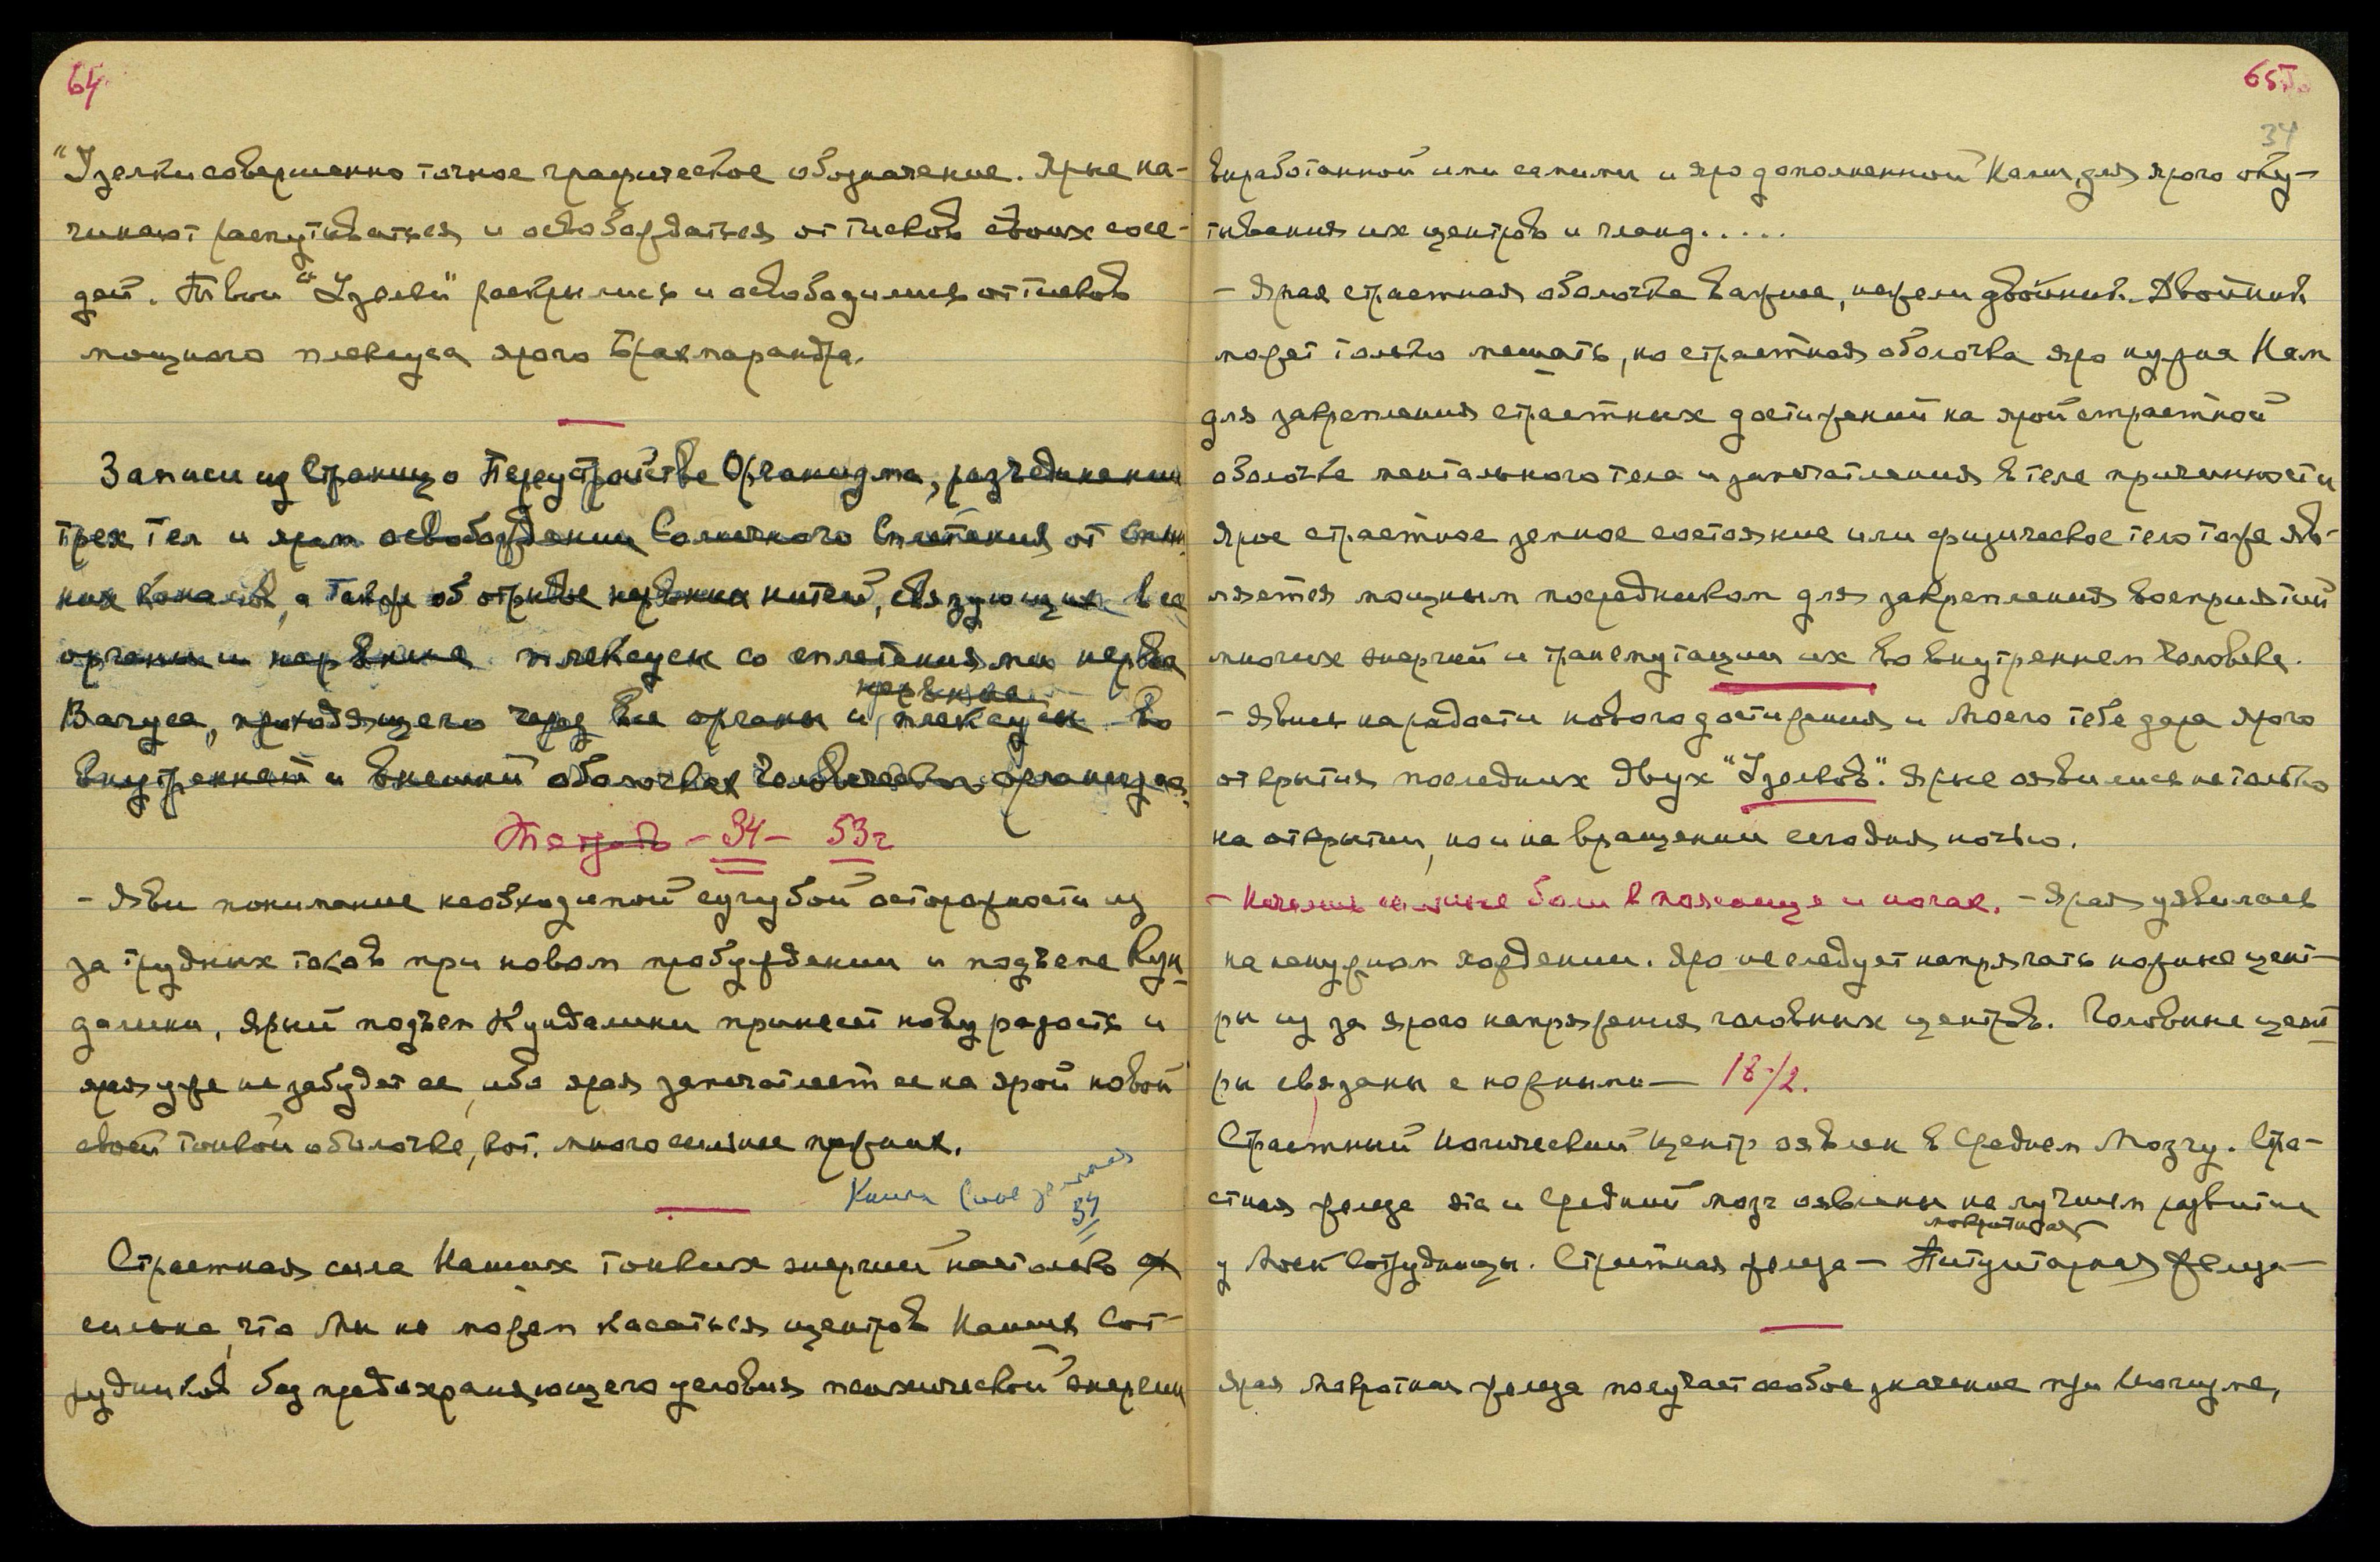 64.
"Узелки совершенно точное графическое обозначение. Ярые на-
чинают распутываться и освобождаться от тисков своих сосе-
дей. Твои "Узелки" раскрылись и освободились от тисков
мощного плексуса ярого Брахмарандра.
Записи из Страниц о Переустройстве Организма, разъединении
трех тел и ярам освобождении Солнечного Сплетения от
них каналов, а также об отрыве нервных нитей, связующих все
органы и нервные плексусы со сплетениями нерва
нервные
Вагуса, проходящего через все органы и плексусы во
внутренней и внешней оболочках человеческого организма.
Тетрадь - 34 - 53 г
- Яви понимание необходимой сугубой осторожности из
за трудных токов при новом пробуждении и подъеме Кун-
далини, Ярый подъем Кундалини принесет нову радость и
ярая уже не забудет ее, ибо ярая запечатлеет ее на ярой новой
своей тонкой оболочке, кот. много сильнее прежних.
Книга
34
Страстная сила Наших тонких энергий настолько
сильна, что Мы не можем касаться центров Наших Сот-
рудников без предохраняющего условия психической энергии
65.
34
выработанной ими самими и яро дополненной Нами, для ярого
тывания их центров и гланд.....
- Ярая страстная оболочка важнее, нежели двойник. Двойник
может только мешать, но страстная оболочка яро нужна Нам
для закрепления страстных достижений на ярой страстной
оболочке ментального тела и запечатления в теле причинности
Ярое страстное земное состояние или физическое тело тоже яв-
ляется мощным посредником для закрепления восприятий
многих энергий и трансмутации их во внутреннем человеке.
- Явись на радости нового достижения и Моего тебе дара ярого
открытия последних двух "Узелков". Ярые оявились не только
на открытии, но и на вращении сегодня ночью.
- Начались сильные боли в пояснице и ногах. - Ярая уявилась
на ненужном хождении. Яро не следует напрягать ножные цент-
ры из за ярого напряжения головных центров. Головные цент-
ры связаны с ножными — 18/2.
Страстный Ногический центр оявлен в Среднем Мозгу. Стра-
стная железа эта и Средний мозг оявлены на лучшем развитии
мокротная
у Моей Сотрудницы. Страстная железа — Питуитарная железа —
Ярая Мокротная железа получает особое значение при